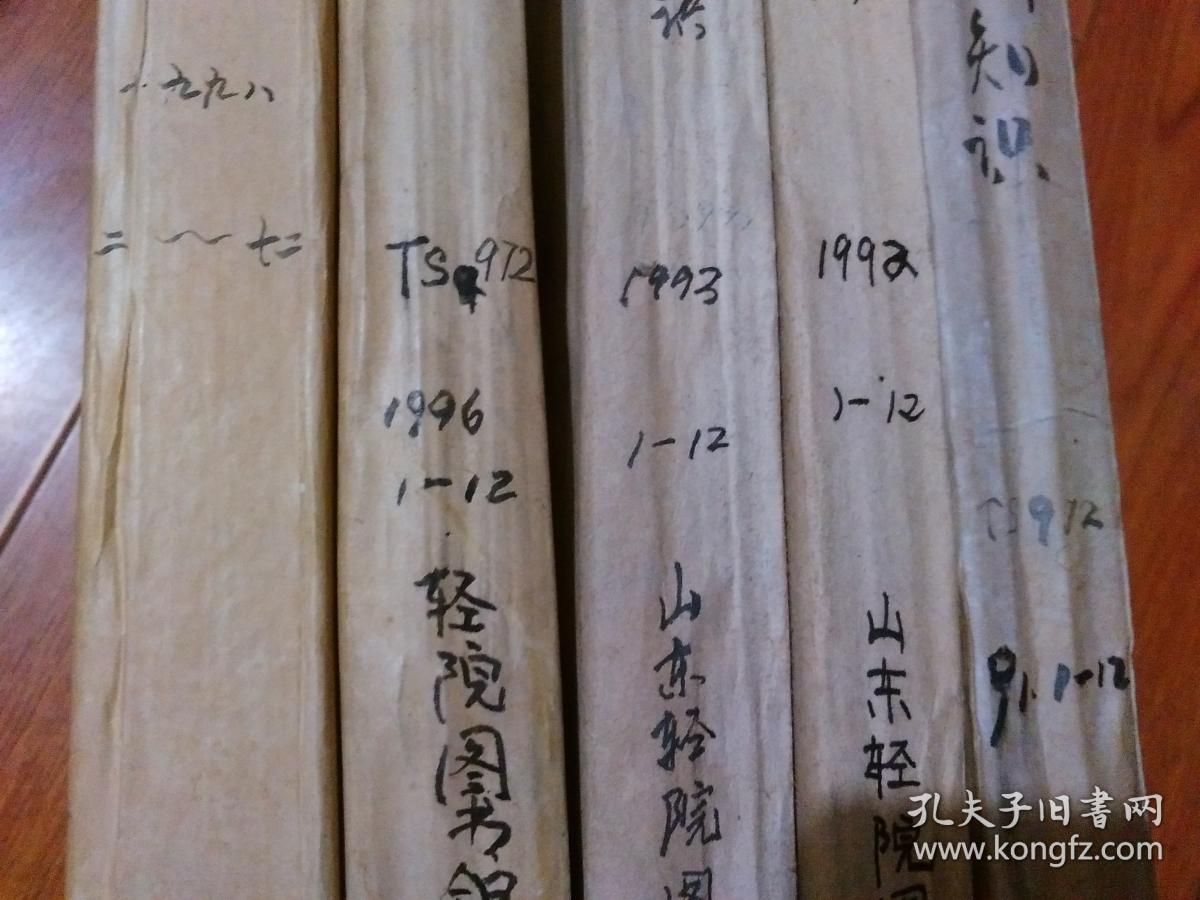 一九九八
二～十二
TS972
1996
1-12
轻院图书馆
1993
1-12
山东轻院图
1992
1-12
山东轻院图
知识
TS972
91. 1-12
孔夫子旧书网
www.kongfz.com